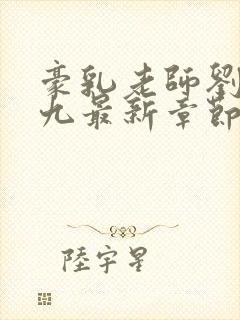 豪乳老師劉
九最新章節
陸宇星